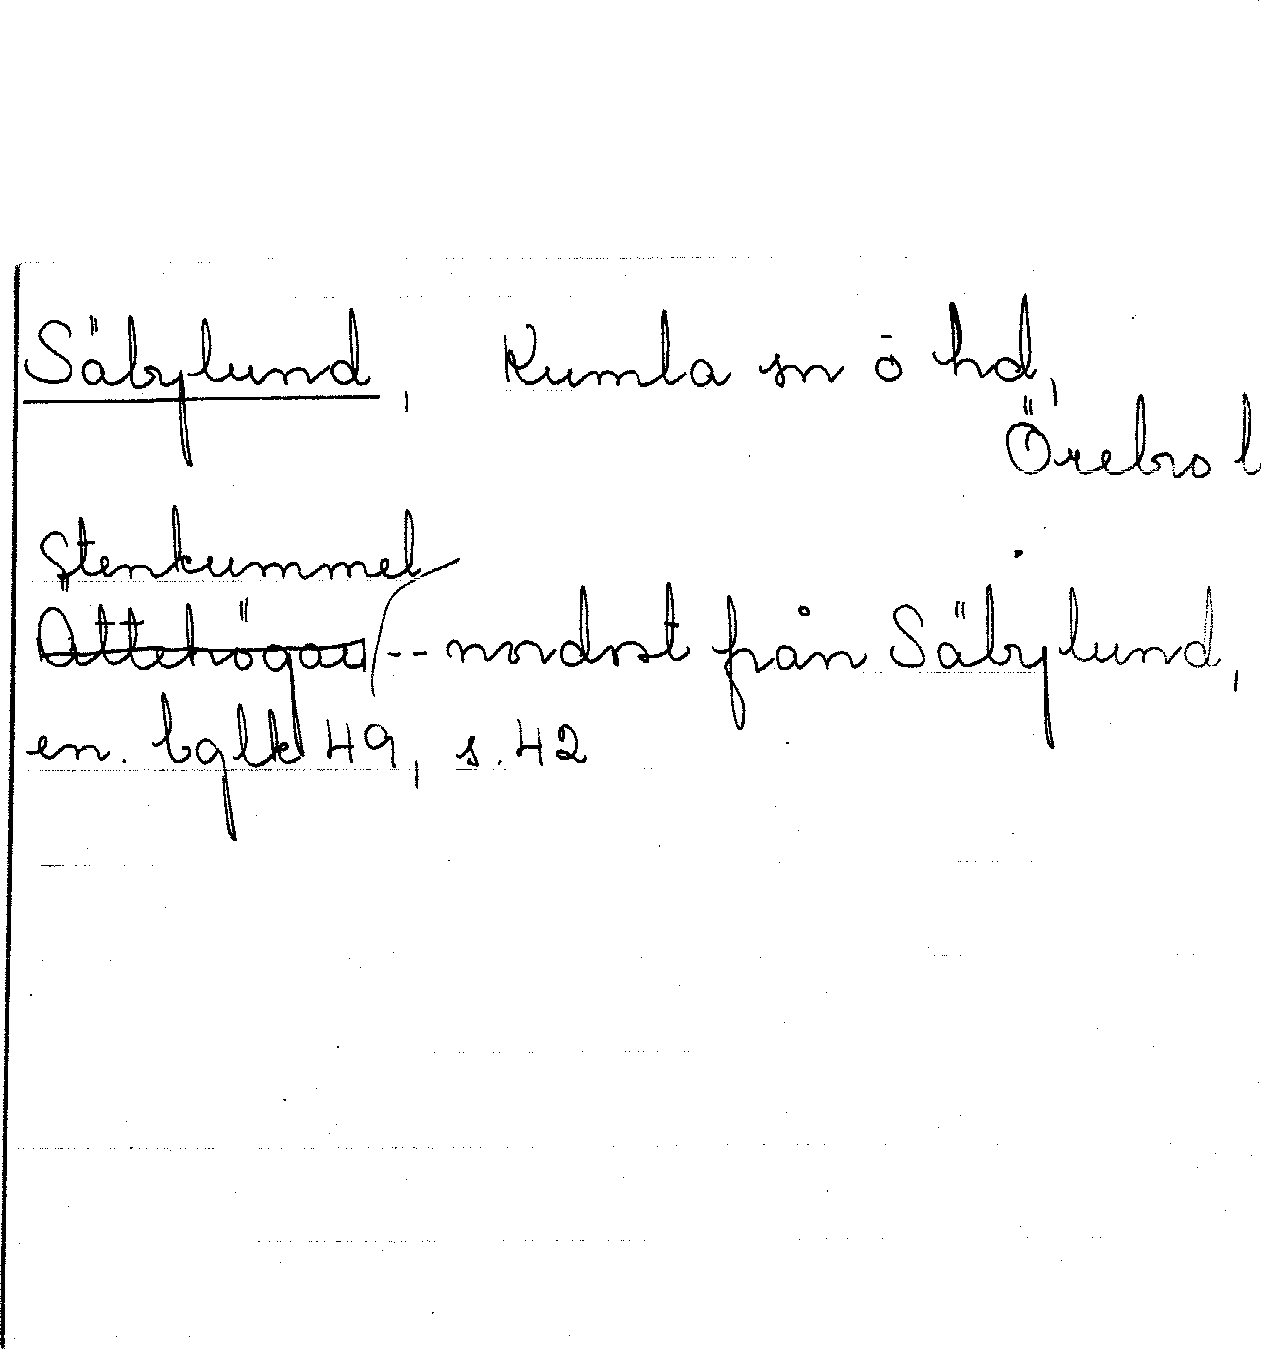 Säbylund, Kumla sn o hd,
Örebro l
Stenkummel
Ättehögar -- nordost från Säbylund,
en. bglk 49, s. 42